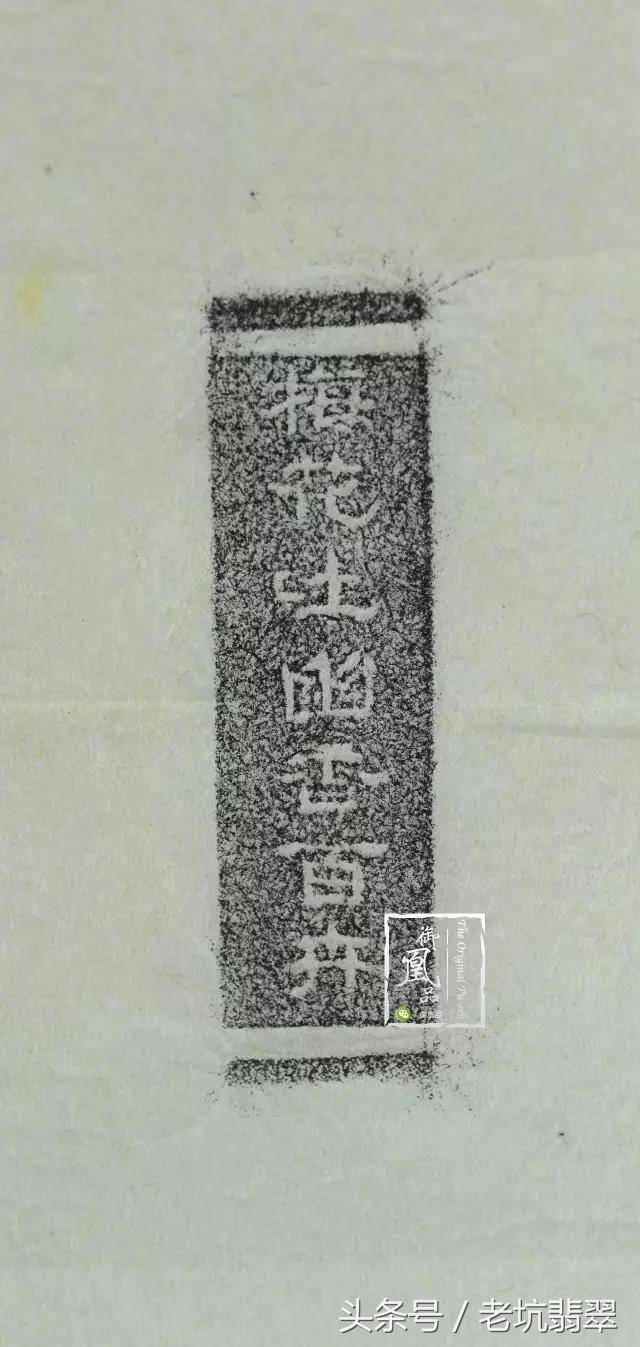 梅花吐幽香百卉
御凰品
The Original
头条号 / 老坑翡翠